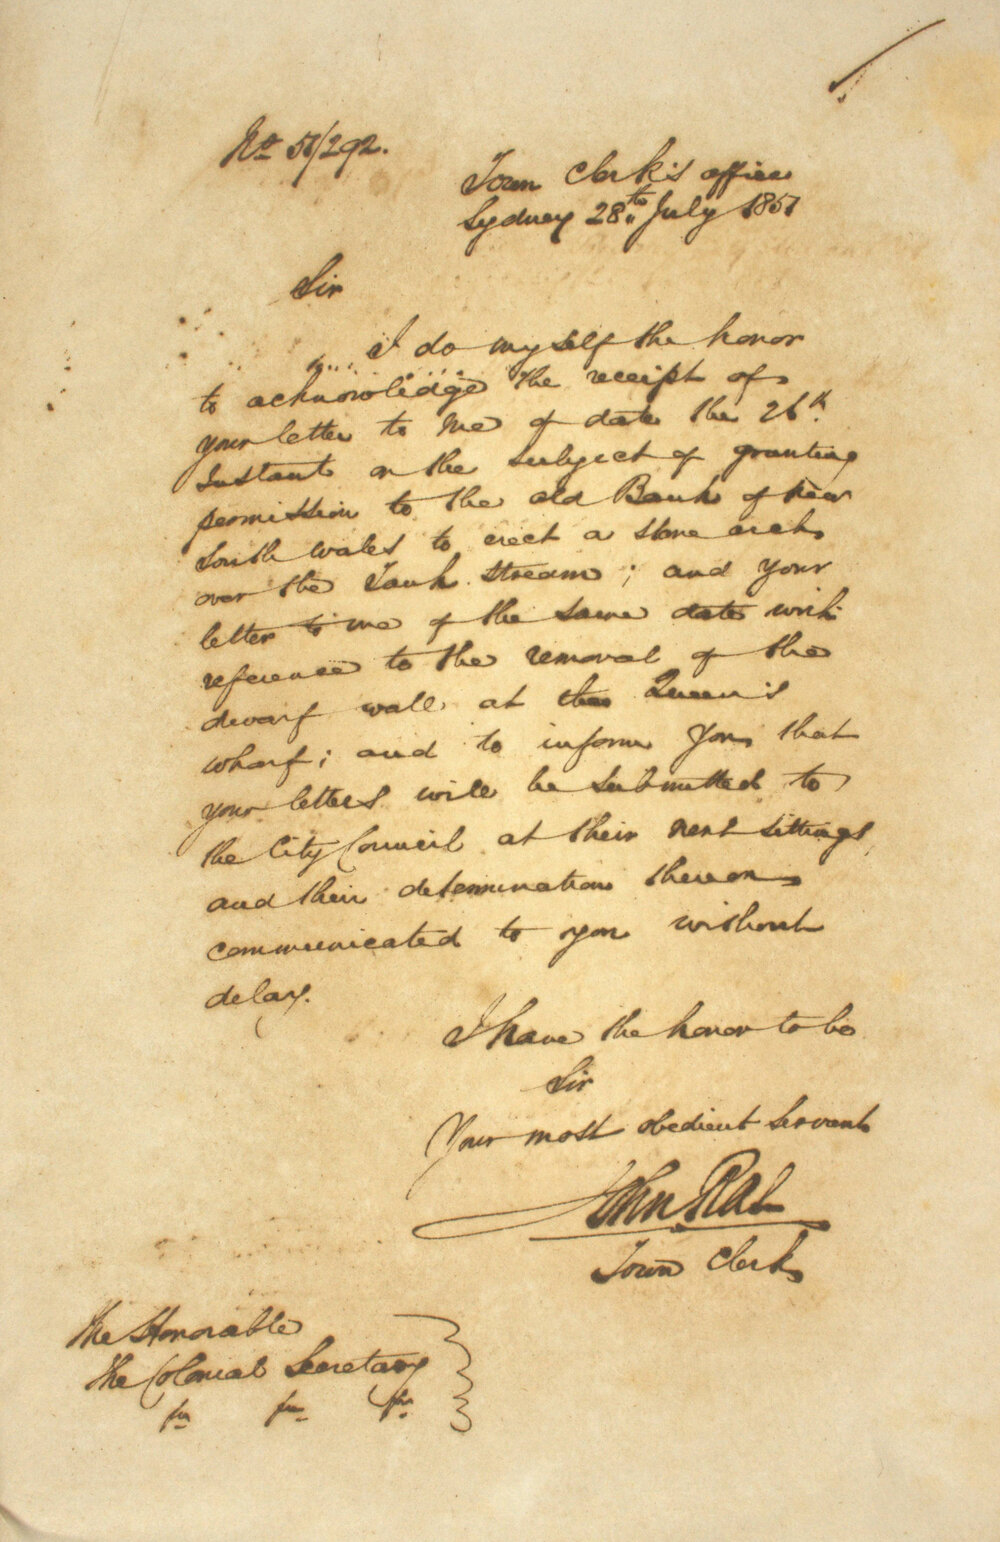 No 51/292.
Town Clerk's office
Sydney 28th July 1851
Sir
I do myself the honor
to acknowledge the receipt of
your letter to me of date the 26th
Instant on the subject of granting
permission to the old Bank of New
South Wales to erect a stone arch
over the Tank Stream; and your
letter to me of the same date with
reference to the removal of the
dwarf wall at the Queen's
wharf; and to inform you that
your letters will be submitted to
the City Council at their next sittings
and their determination thereon
communicated to you without
delay.
I have the honor to be
Sir
Your most obedient Servant
John Rae
Town Clerk
The Honorable
The Colonial Secretary